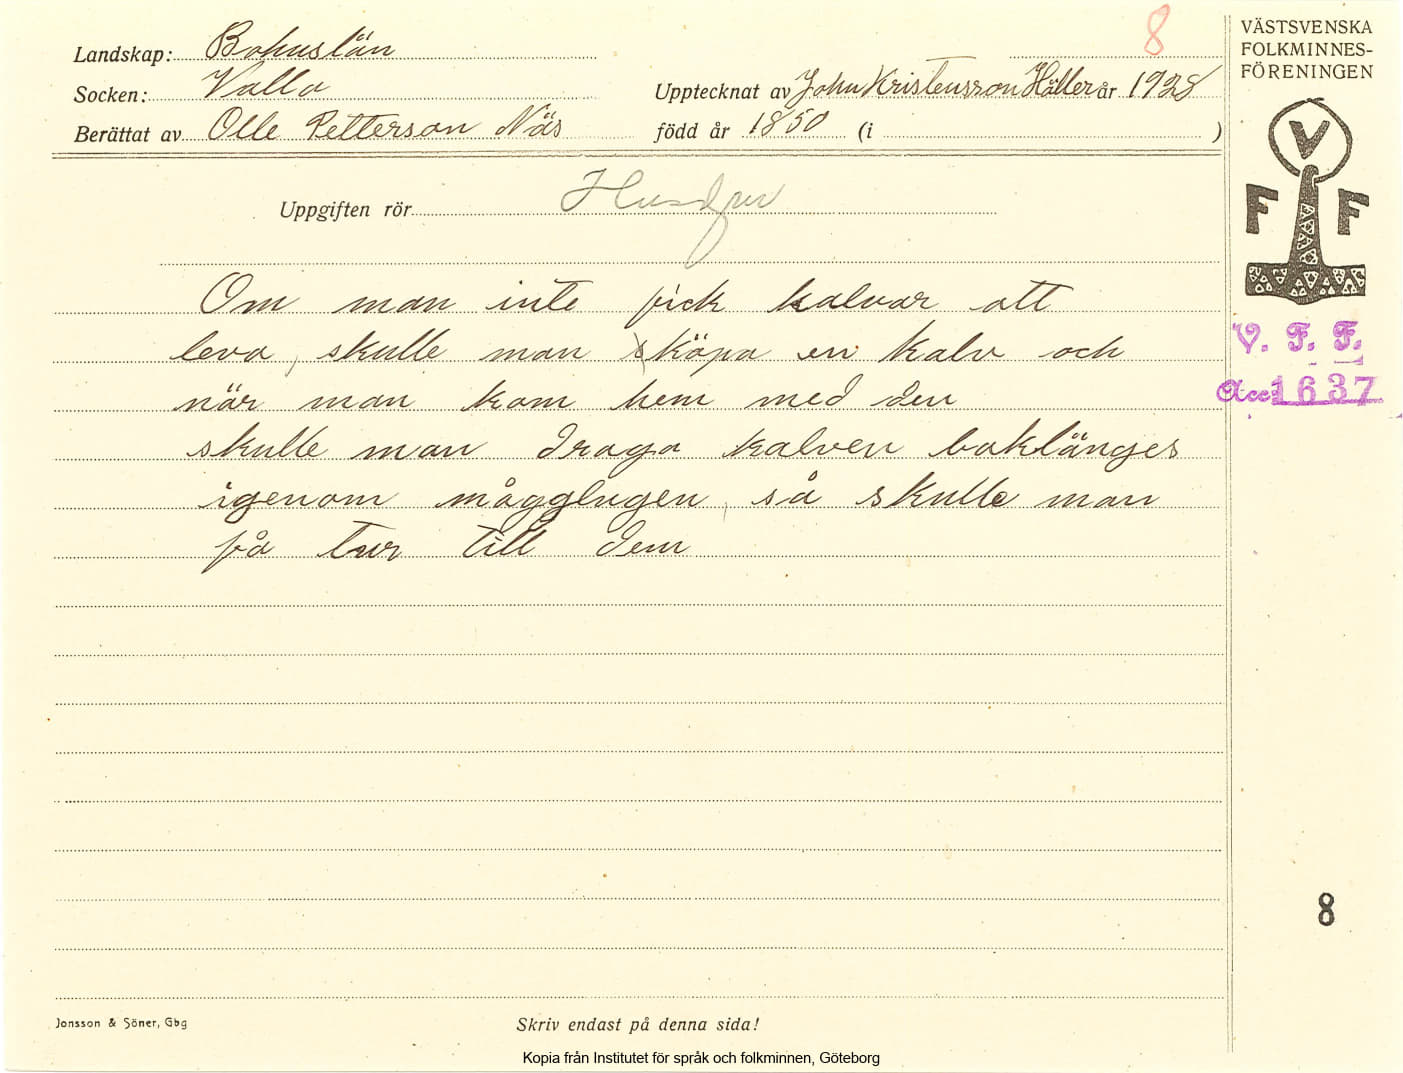 8
Landskap: Bohuslän
Socken: Valla
Upptecknat av John Kristensson Häller år 1928
Berättat av Olle Petterson Näs
född år 1850 (i )
VÄSTSVENSKA
FOLKMINNES-
FÖRENINGEN
V
F F
Uppgiften rör Husdjur
Om man inte fick kalvar att
leva, skulle man köpa en kalv och
när man kom hem med den
skulle man draga kalven baklänges
igenom mågglugen, så skulle man
få tur till dem
V. F. F.
Acc 1637
8
Jonsson & Söner, Gbg
Skriv endast på denna sida!
Kopia från Institutet för språk och folkminnen, Göteborg